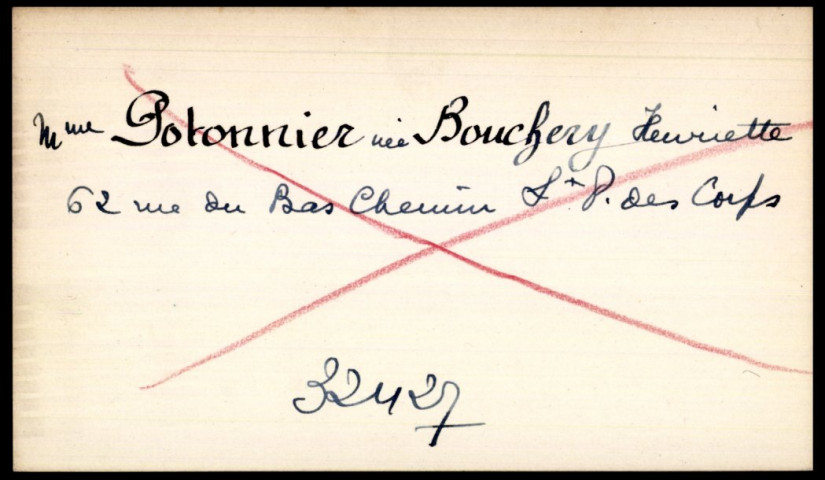 Mme Potonnier née Bouchery Henriette
62 rue du Bas Chemin St P. des Corps
32427